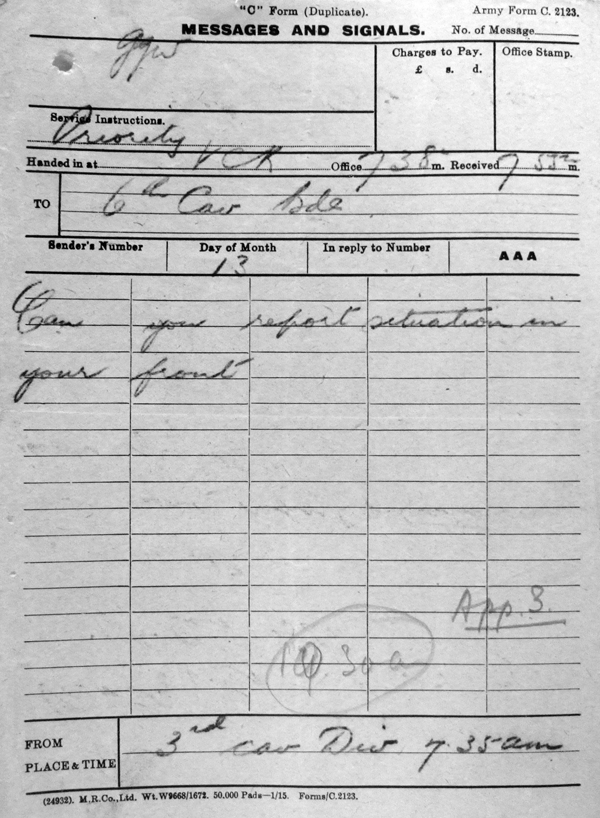 "C" Form (Duplicate). Army Form C. 2123.
MESSAGES AND SIGNALS. No. of Message
Charges to Pay. Office Stamp.
£ s. d.
Service Instructions.
Priority
Handed in at VCR Office 7 38 m. Received 7 53 m.
TO 6th Cav Bde
Sender's Number Day of Month In reply to Number AAA
13
Can you report situation in
your front
App. 3.
30 a
FROM 3rd Cav Div 7.35am
PLACE & TIME
(24932). M.R.Co.,Ltd. Wt.W9668/1672. 50,000 Pads—1/15. Forms/C.2123.